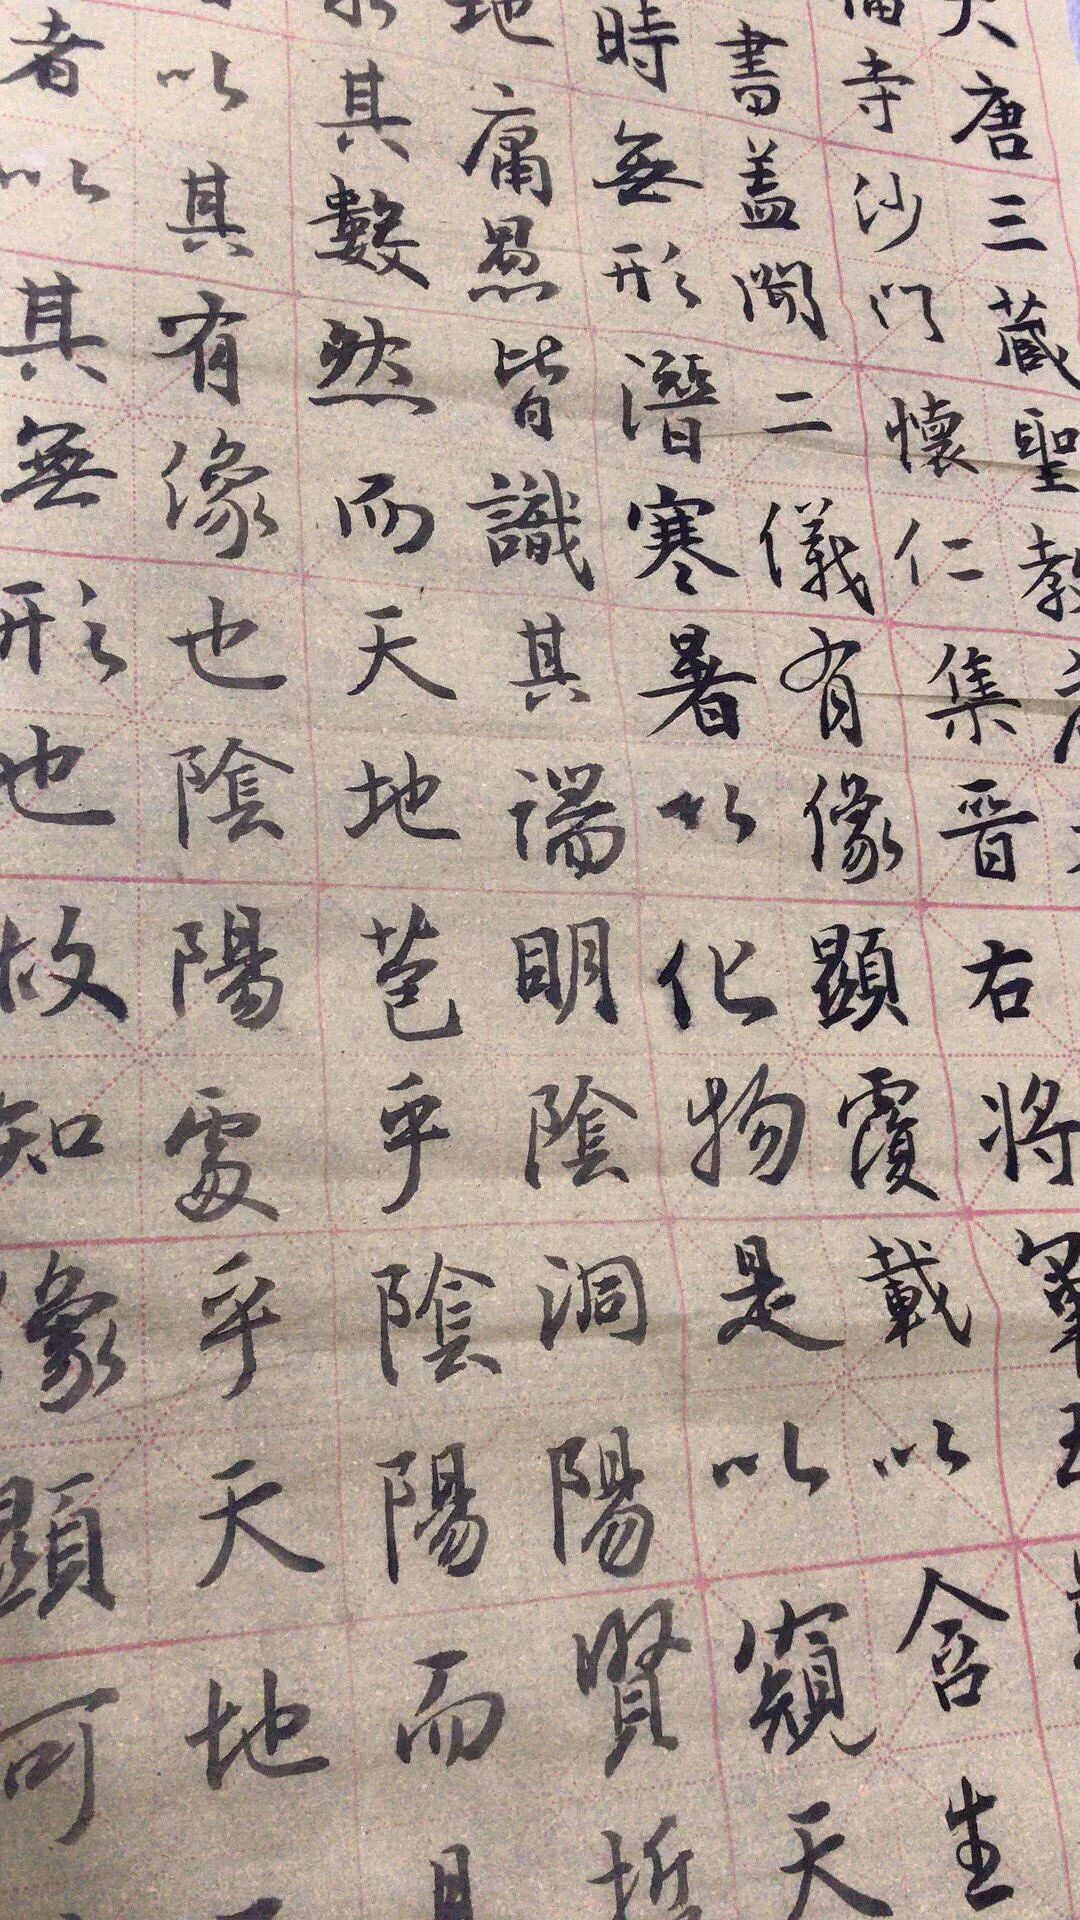 大唐三藏聖教
寺沙門懷仁集晉右將軍
書盖聞二儀有像顯覆載以含生
時無形潛寒暑以化物是以窺天
地庸愚皆識其端明陰洞陽賢哲
其數然而天地苞乎陰陽而
以其有像也陰陽處乎天地
者以其無形也故知像顯可